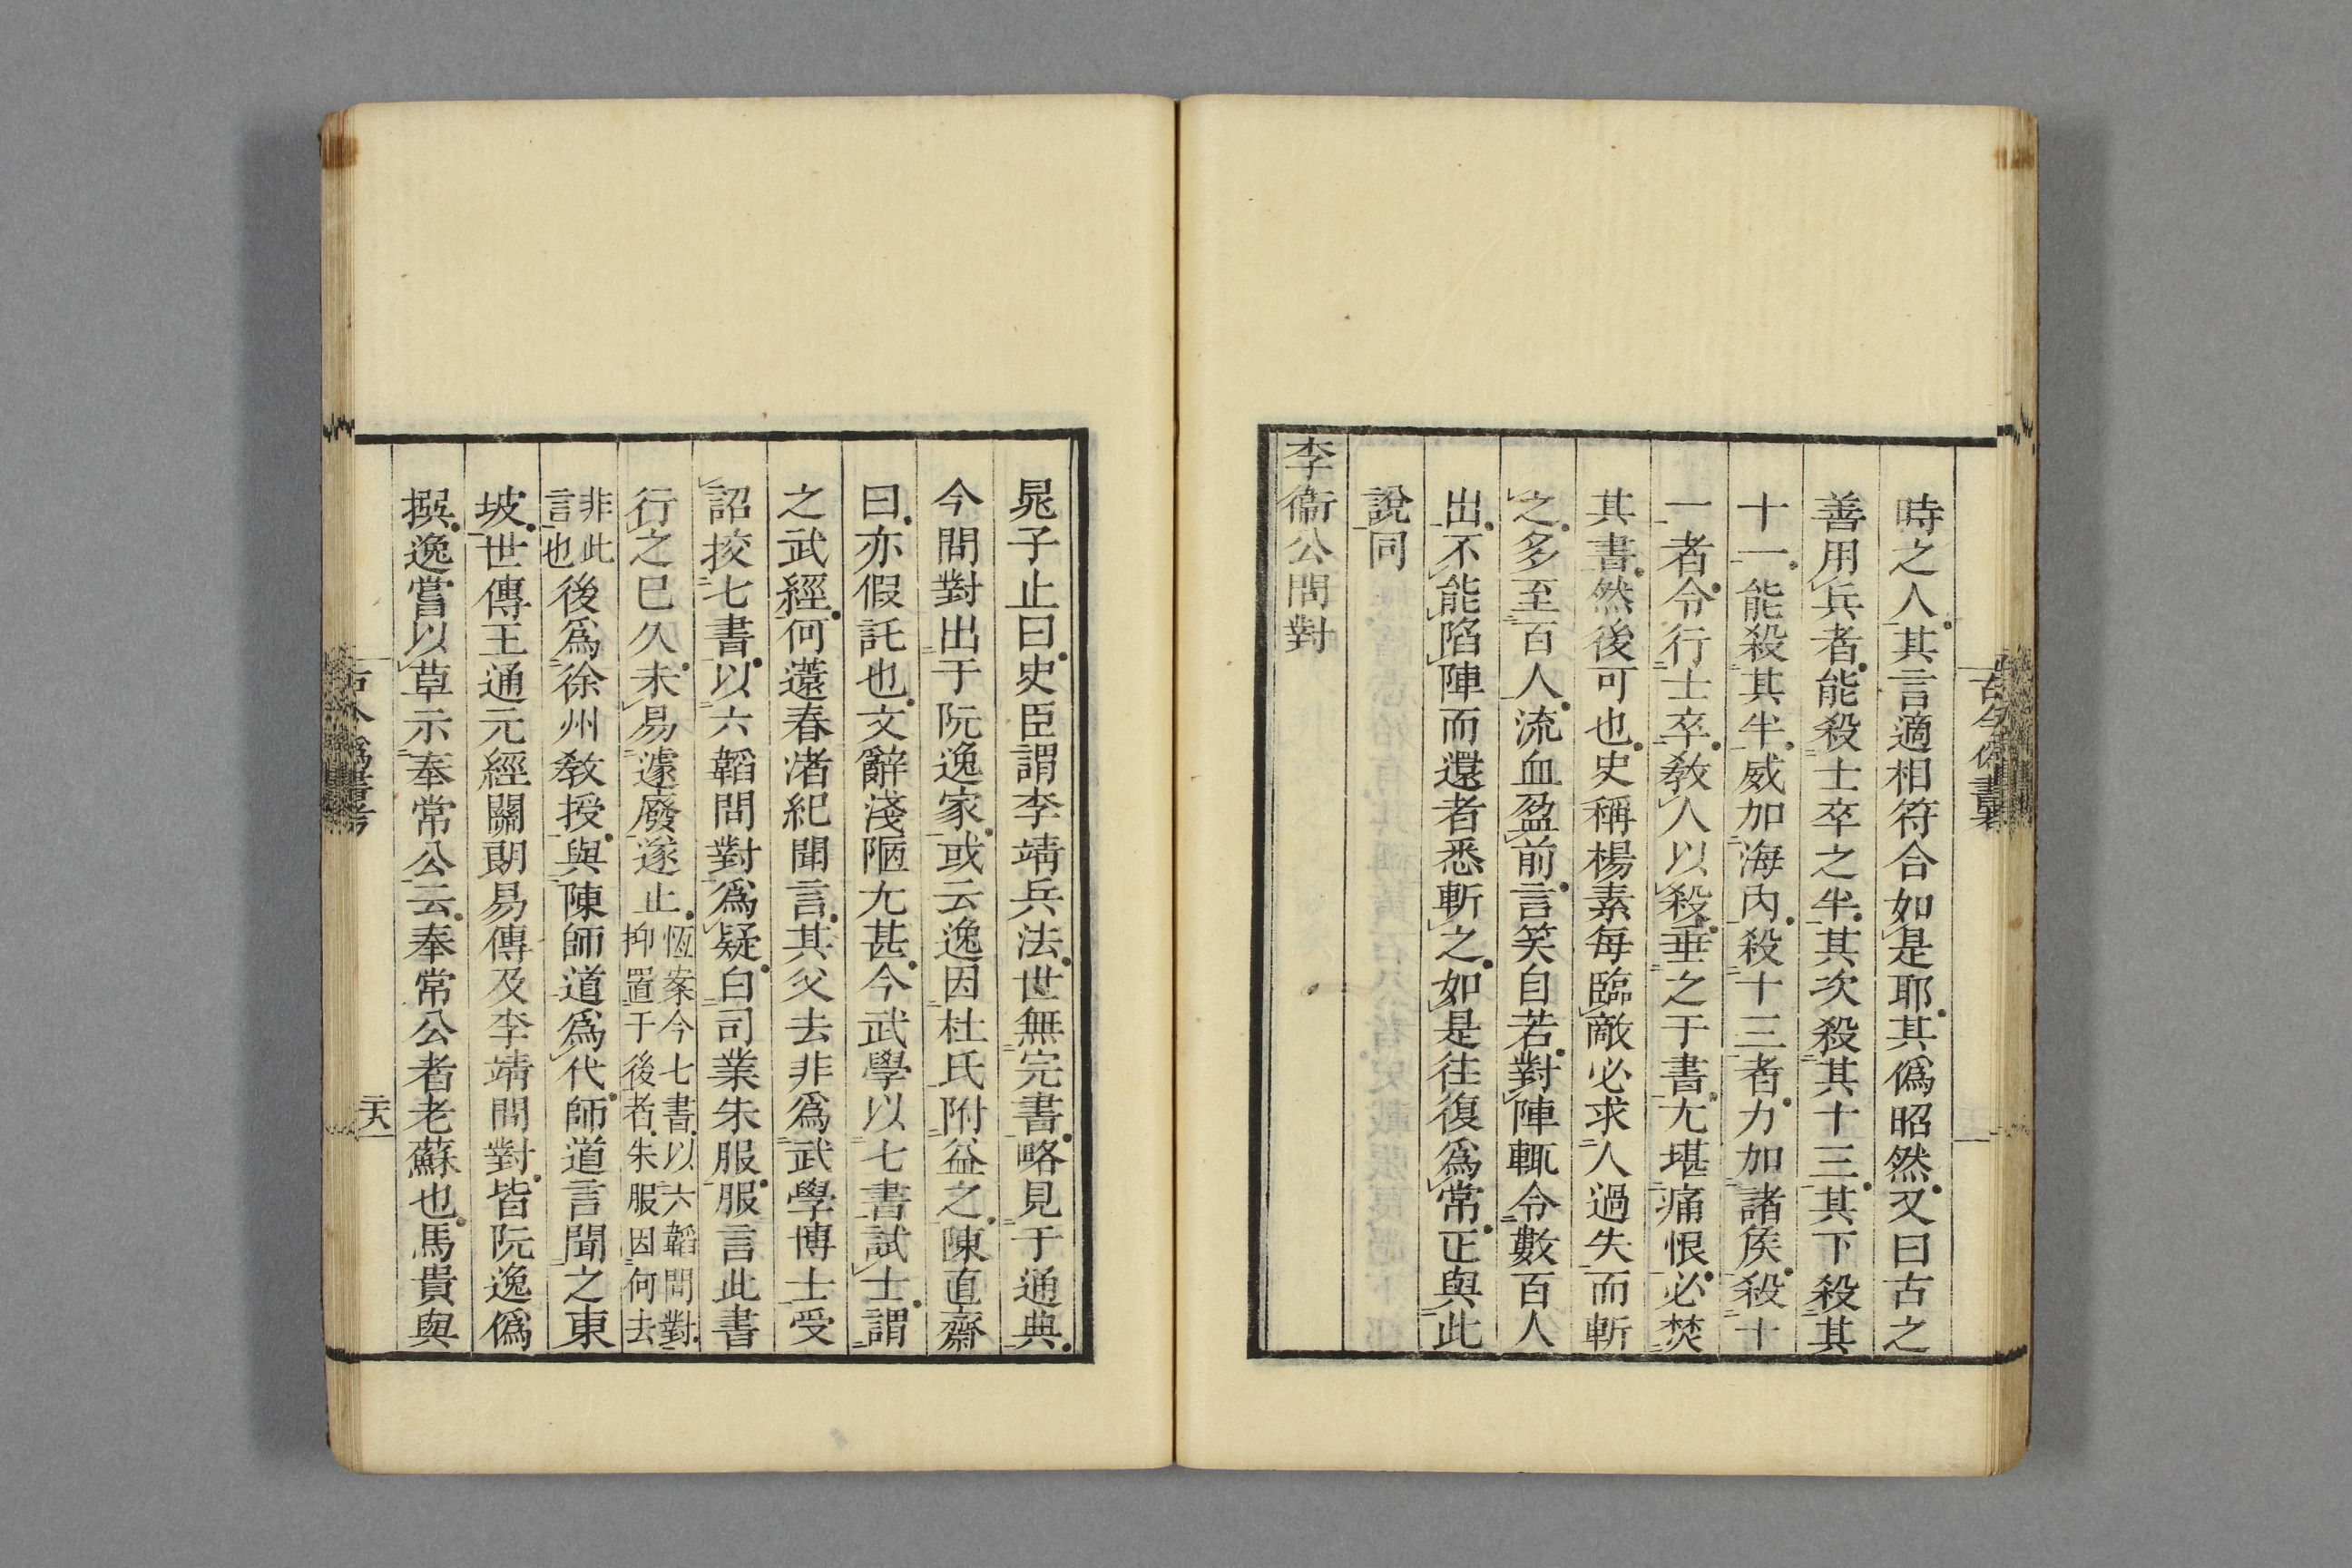 時之人其言適相符合如是耶其僞昭然又曰古之
善用兵者能殺士卒之半其次殺其十三其下殺其
十一能殺其半威加海內殺十三者力加諸矦殺十
一者令行士卒敎人以殺垂之于書尤堪痛恨必焚
其書然後可也史稱楊素每臨敵必求人過失而斬
之多至百人流血盈前言笑自若對陣輒令數百人
出不能陷陣而還者悉斬之如是往復爲常正與此
說同
李衞公問對
晁子止曰史臣謂李靖兵法世無完書略見于通典
今問對出于阮逸家或云逸因杜氏附益之陳直齋
曰亦假託也文辭淺陋尤甚今武學以七書試士謂
之武經何薳春渚紀聞言其父去非爲武學博士受
詔挍七書以六韜問對爲疑白司業朱服服言此書
行之已久未易遽廢遂止恆案今七書以六韜問對
抑置于後者朱服因何去
非此
言也後爲徐州敎授與陳師道爲代師道言聞之東
坡世傳王通元經關朗易傳及李靖問對皆阮逸僞
撰逸嘗以草示奉常公云奉常公者老蘇也馬貴與
古今僞書考
二十八